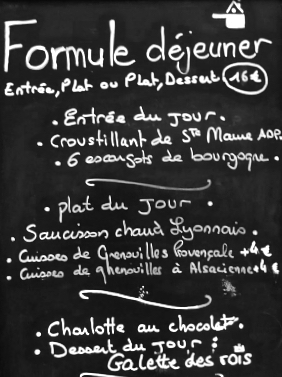 Formule déjeuner
Entrée, Plat ou Plat, Dessert 16€
. Entrée du jour.
. Croustillant de Ste Maure AOP.
. 6 escargots de bourgogne.
. plat du jour .
. Saucisson chaud Lyonnais.
. Cuisses de Grenouilles Provençale +4€
. Cuisses de grenouilles à Alsacienne +4€
. Charlotte au chocolat.
. Dessert du jour :
Galette des rois